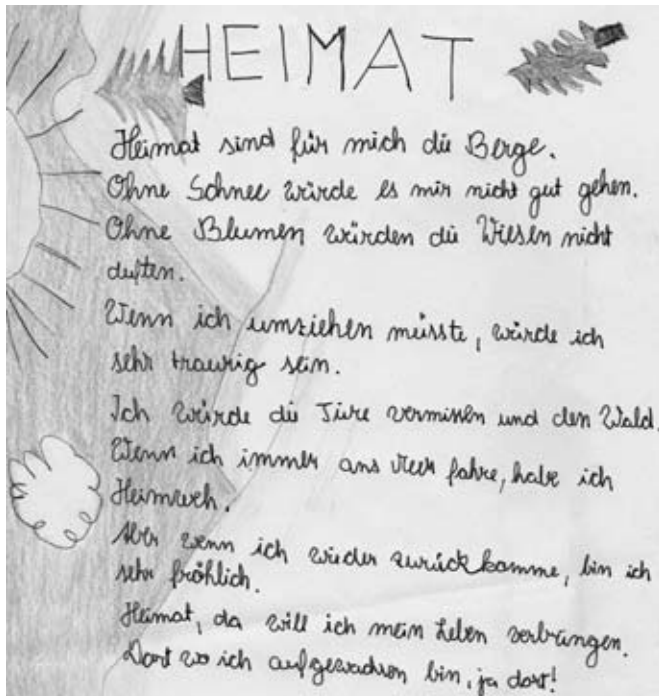 HEIMAT
Heimat sind für mich die Berge.
Ohne Schnee würde es mir nicht gut gehen.
Ohne Blumen würden die Wiesen nicht
duften.
Wenn ich umziehen müsste, würde ich
sehr traurig sein.
Ich würde die Tiere vermissen und den Wald.
Wenn ich immer ans Meer fahre, habe ich
Heimweh.
Aber wenn ich wieder zurückkomme, bin ich
sehr fröhlich.
Heimat, da will ich mein Leben verbringen.
Dort wo ich aufgewachsen bin, ja dort!